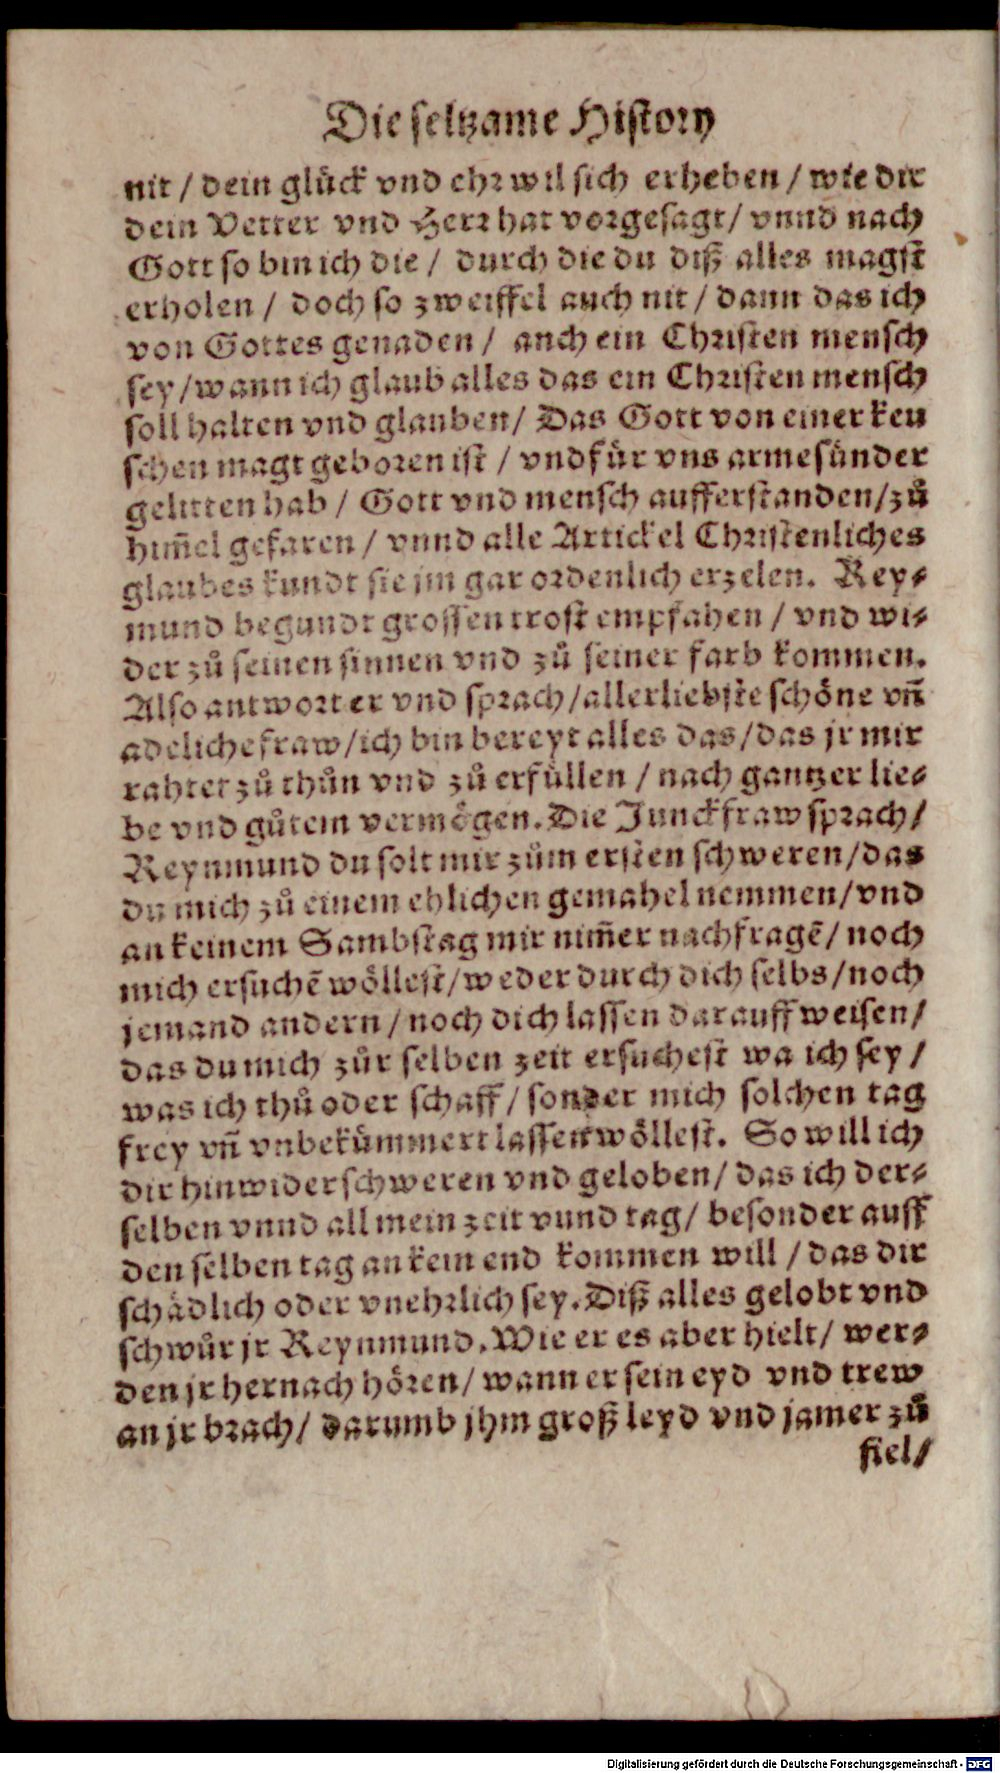 Die seltzame History
nit / dein glück vnd ehr wil sich erheben / wie dir
dein Vetter vnd Herr hat vorgesagt / vnnd nach
Gott so bin ich die / durch die du diß alles magst
erholen / doch so zweiffel auch nit / dann das ich
von Gottes genaden / auch ein Christen mensch
sey / wann ich glaub alles das ein Christen mensch
soll halten vnd glauben / Das Gott von einer keu
schen magt geboren ist / vnd für vns arme sünder
gelitten hab / Gott vnd mensch aufferstanden / zů
him̃el gefaren / vnnd alle Artickel Christenliches
glaubes kundt sie jm gar ordenlich erzelen. Rey⸗
mund begundt grossen trost empfahen / vnd wi⸗
der zů seinen sinnen vnd zů seiner farb kommen.
Also antwort er vnd sprach / allerliebste schöne vñ
adeliche fraw / ich bin bereyt alles das / das jr mir
rahtet zů thůn vnd zů erfüllen / nach gantzer lie⸗
be vnd gůtem vermögen. Die Junckfraw sprach /
Reynmund du solt mir zům ersten schweren / das
du mich zů einem ehlichen gemahel nemmen / vnd
an keinem Sambstag mir nim̃er nachfragẽ / noch
mich ersuchẽ wöllest / weder durch dich selbs / noch
jemand andern / noch dich lassen darauff weisen /
das du mich zůr selben zeit ersuchest wa ich sey /
was ich thů oder schaff / sonder mich solchen tag
frey vñ vnbekümmert lassen wöllest. So will ich
dir hinwider schweren vnd geloben / das ich der⸗
selben vnnd all mein zeit vnnd tag / besonder auff
den selben tag an kein end kommen will / das dir
schädlich oder vnehrlich sey. Diß alles gelobt vnd
schwůr jr Reynmund. Wie er es aber hielt / wer⸗
den jr hernach hören / wann er sein eyd vnd trew
an jr brach / darumb jhm groß leyd vnd jamer zů
fiel /
Digitalisierung gefördert durch die Deutsche Forschungsgemeinschaft - DFG